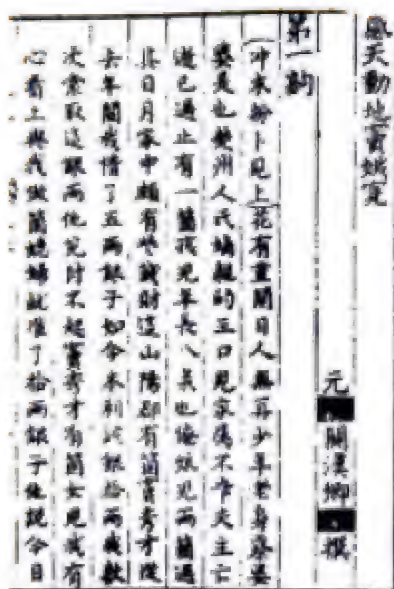 感天動地竇娥冤
元 關漢卿 撰
第一
冲末扮卜兒上花有重開日人無再少年老身蔡婆
婆是也楚州人氏嫡親的三口兒家屬不幸夫主亡
逝已過止有一箇孩兒年長八歲也俺娘兒兩箇過
其日月家中頗有些錢財這山陽郡有箇竇秀才從
去年間我借了五兩銀子如今本利該銀拾兩我數
次索取這銀兩他 付不起竇秀才有箇女兒我有
心看上與我做箇媳婦就准了拾兩銀子他說今日